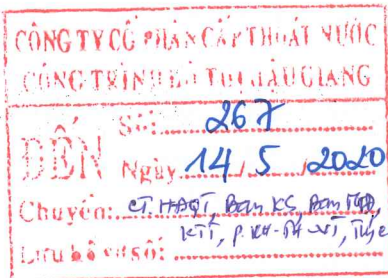 CÔNG TY CỔ PHẦN CẤP THOÁT NƯỚC
CÔNG TRÌNH ĐÔ THỊ HẬU GIANG
ĐẾN
Số: 267
Ngày 14/5/2020
Chuyển: CT. HĐQT, Ban KS, Ban TGĐ,
KTT, P. KH
Lưu hồ sơ số: